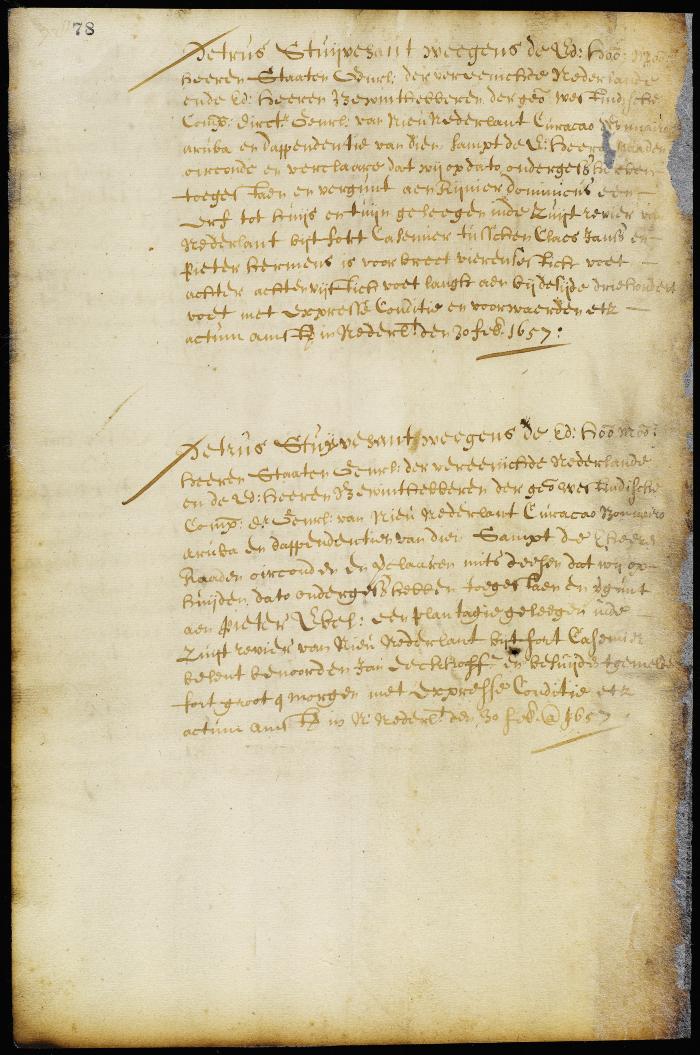 78
Petrus Stuijvesant weegens de Ed: Hoo: Moo:
heeren Staaten Genrl: der vereenichde Nederlande
ende Ed: heeren Bewinthebberen der geo: west Indische
Comp: Directr. Genrl: van Nieu Nederlant Curacao Bonnairo
aruba en dappendentie van dien, sampt de E: heeren Raaden
oirconde en verclaare dat wij op dato ondergess: hebben
toegestaen en vergunt aen Reijnier dominicus een
Erf tot huijs en tuijn geleegen inde Zuijt revier van
Nederlant bijt fort Casemier tusschen Claes Janss en
pieter hermens is voor breet vierensestich voet
achter achtenvijftich voet langh aen beijde sijde driehondert
voet met Expresse Conditie en voorwaerden etz
actum amst: in Nederlt: den 30 feb: 1657:
Petrus Stuijvesant weegens de Ed: hoo: Moo:
heeren Staaten Genrl: der vereenichde Nederlande
en de Ed: heeren Bewinthebberen der geo: west Indische
Comp: dr: Genrl: van Nieu Nederlant Curacao Bonnairo
aruba en dappendentien van dien Sampt de E heeren
Raaden oirconden en verclaaren mits deesen dat wij op
huijden dato ondergess: hebben toegestaen en vergunt
aen Pieter Ebel: een plantagie geleegen inde
Zuijt revier van Nieu Nederlant bijt fort Casemier
belent benoorden Jan Eeckhoff en besuijde tgemelde
fort groot 9 morgen met Expresse Conditie etz
actum amst: in N: Nederlt: den 30 feb: @ 1657